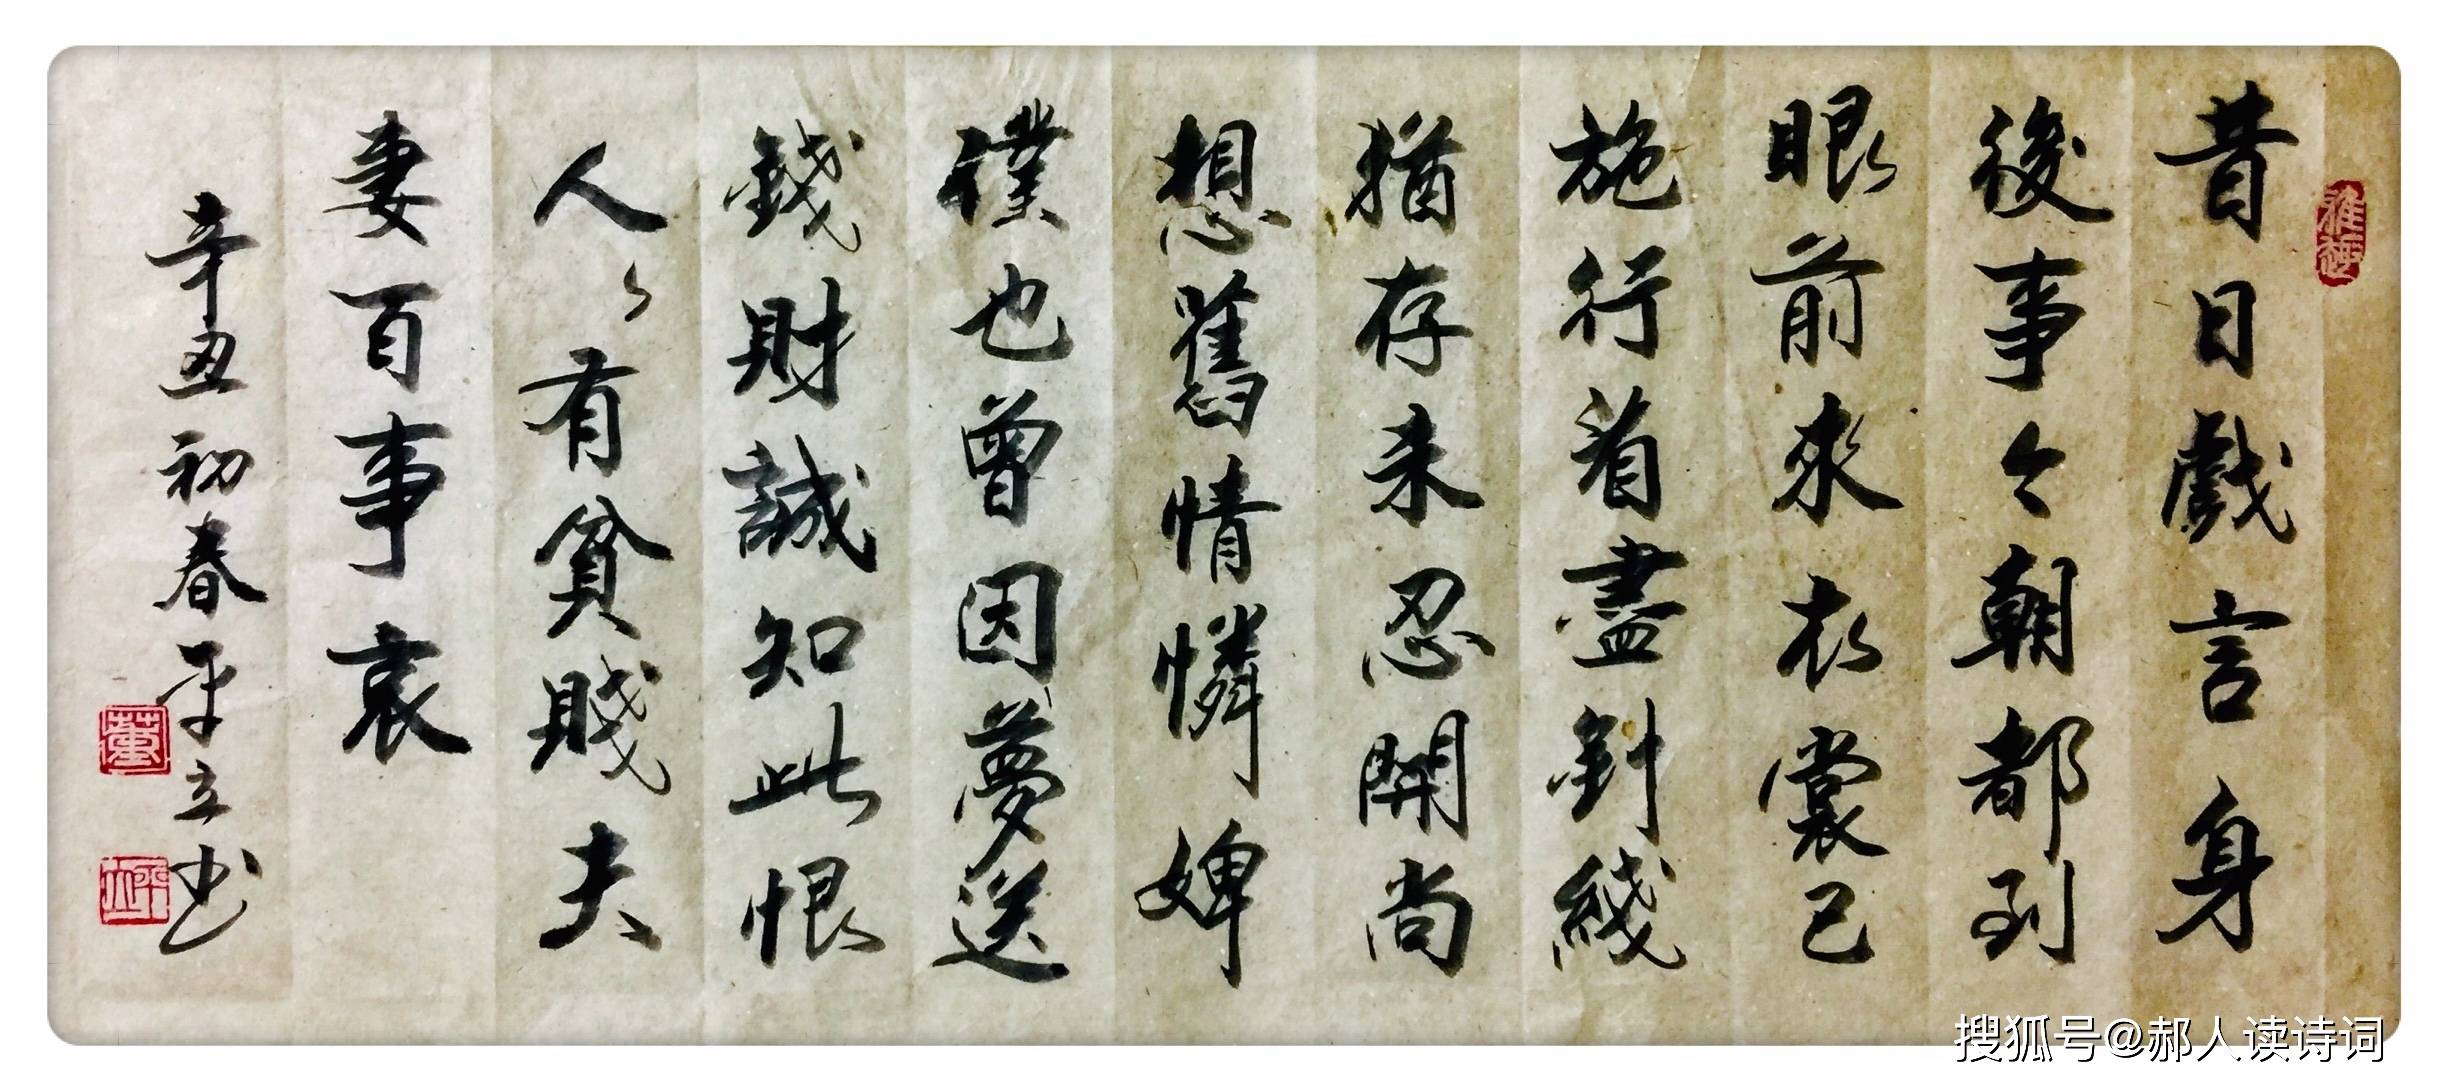 昔日戲言身
後事今朝都到
眼前來衣裳已
施行看盡針綫
猶存未忍開尚
想舊情憐婢
僕也曾因夢送
錢財誠知此恨
人々有貧賤夫
妻百事哀
辛丑初春平立书
董
搜狐号@郝人读诗词